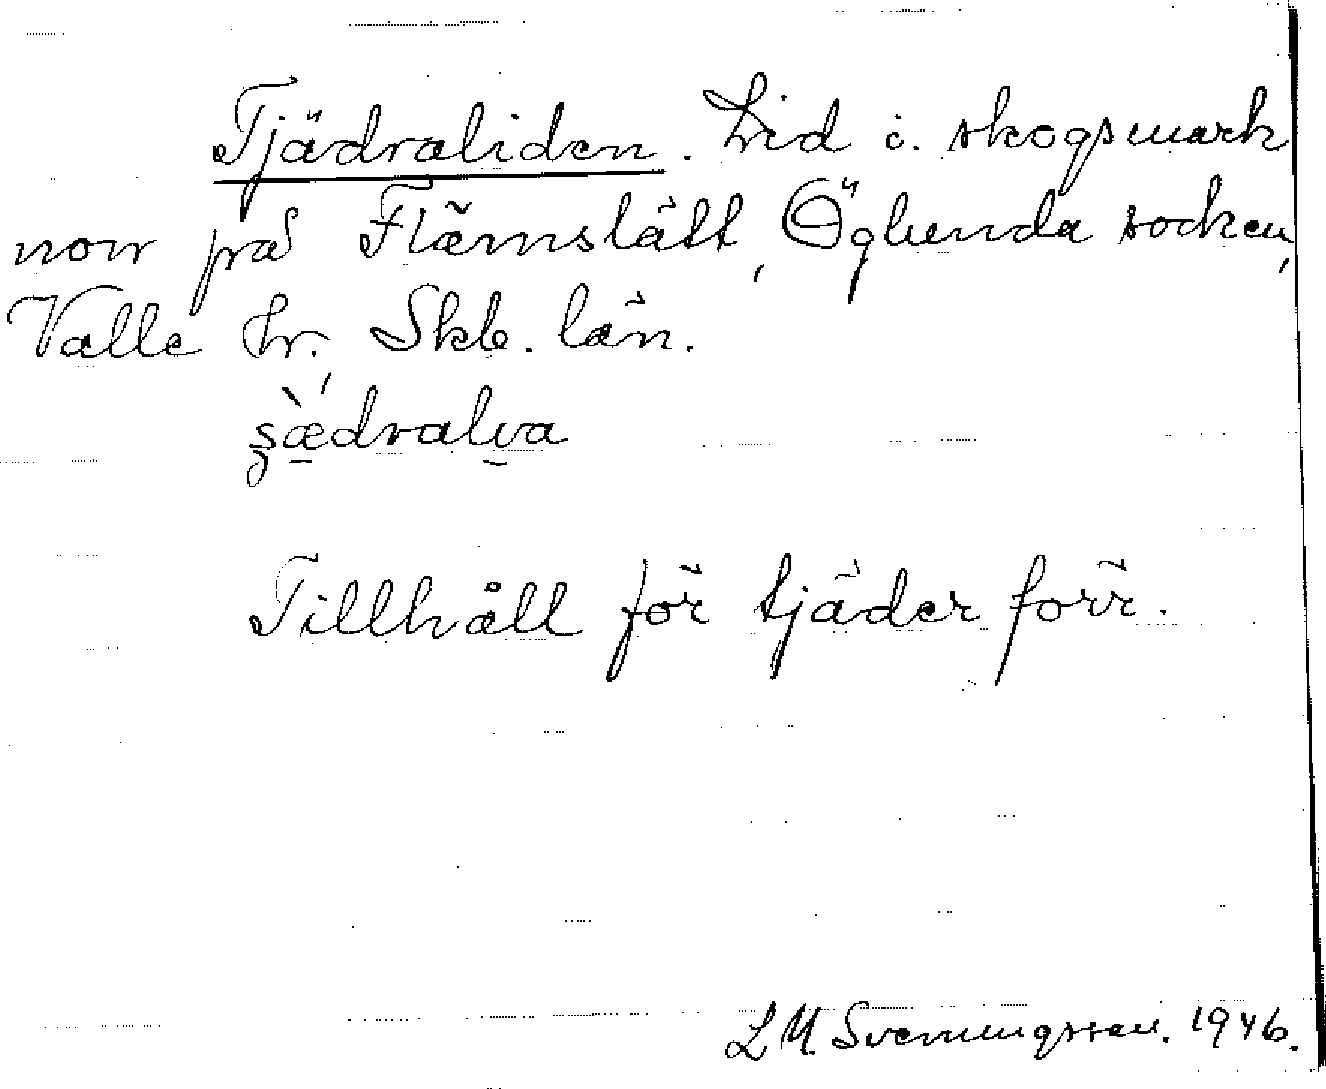 Tjädraliden. Lid i skogsmark
norr på Flämslätt, Öglunda socken,
Valle hr. Skb. län.
sædralıa
Tillhåll för tjäder förr.
L M Svenungsson. 1946.